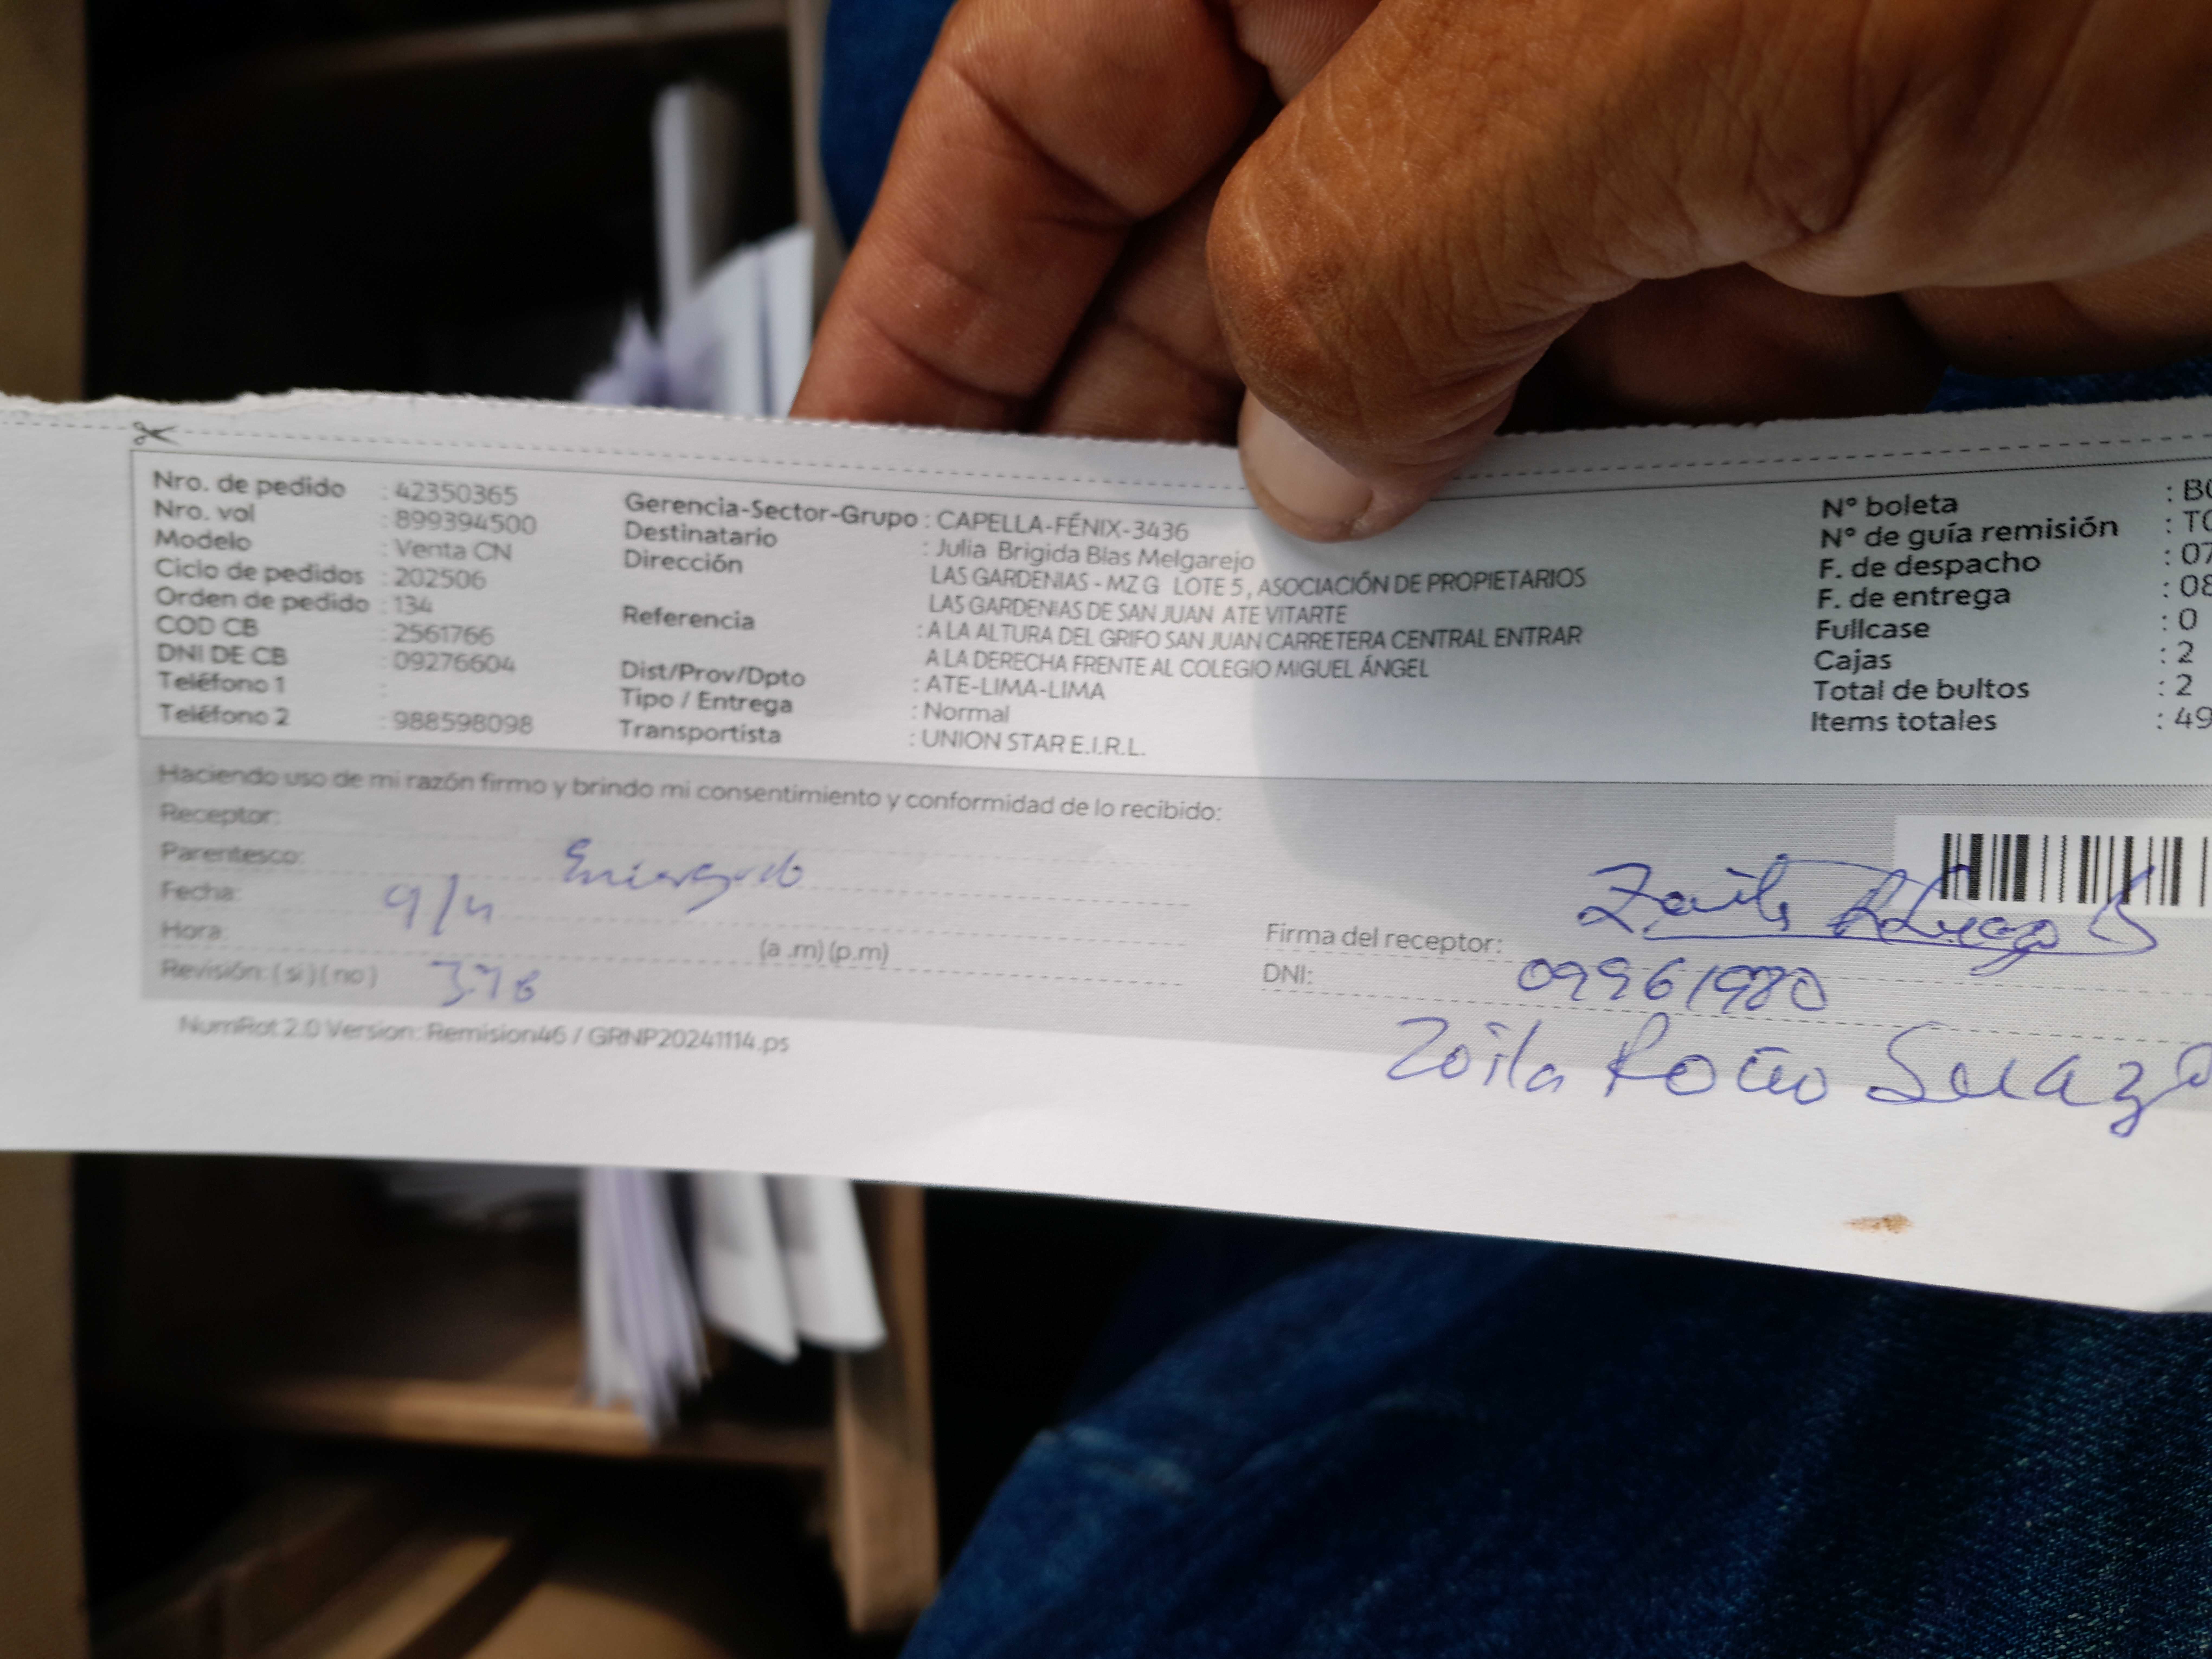 Nro. de pedido : 42350365
Nro. vol : 899394500
Modelo : Venta CN
Ciclo de pedidos : 202506
Orden de pedido : 134
COD CB : 2561766
DNI DE CB : 09276604
Teléfono 1 :
Teléfono 2 : 988598098
Gerencia-Sector-Grupo : CAPELLA-FÉNIX-3436
Destinatario : Julia Brigida Blas Melgarejo
Dirección LAS GARDENIAS - MZ G LOTE 5 , ASOCIACIÓN DE PROPIETARIOS
LAS GARDENIAS DE SAN JUAN ATE VITARTE
Referencia : A LA ALTURA DEL GRIFO SAN JUAN CARRETERA CENTRAL ENTRAR
A LA DERECHA FRENTE AL COLEGIO MIGUEL ÁNGEL
Dist/Prov/Dpto : ATE-LIMA-LIMA
Tipo / Entrega : Normal
Transportista : UNION STAR E.I.R.L.
N° boleta : B
N° de guía remisión : T
F. de despacho : 07
F. de entrega : 08
Fullcase : 0
Cajas : 2
Total de bultos : 2
Items totales : 49
Haciendo uso de mi razón firmo y brindo mi consentimiento y conformidad de lo recibido:
Receptor:
Parentesco:
Fecha: 9/4
Hora: (a .m) (p.m)
Revisión: ( si ) ( no )
Firma del receptor: Zoila
DNI: 09961980
Zoila Suazo
NumRot 2.0 Version: Remision46 / GRNP20241114.ps